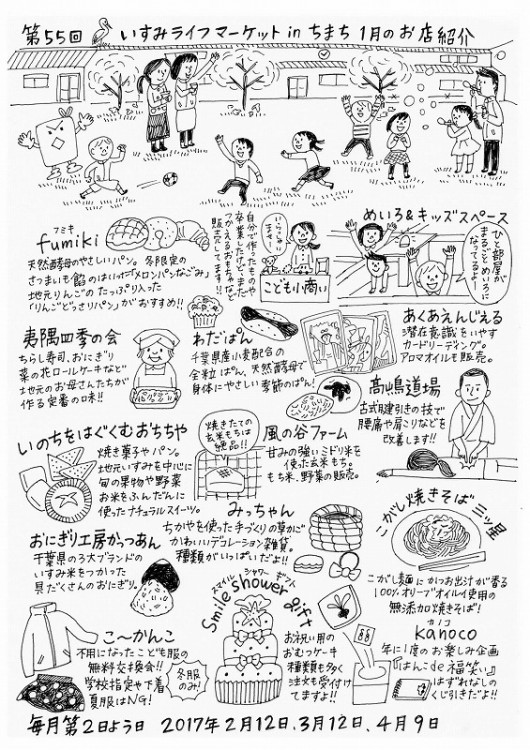 第55回 いすみライフマーケット in ちまち 1月のお店紹介
フミキ
fumiki
天然酵母のやさしいパン。冬限定の
さつまいも餡のはいった「メロンパンなごみ」
地元りんごのたっぷり入った
「りんごどっさりパン」がおすすめ!!
自分で作ったものや
卒業したけど、まだ
つかえるおもちゃなど
販売してます!!
いらっしゃい
ませー
こども小商い
めいろ&キッズスペース
ひと部屋が
まるごとめいろに
なってるよー!
夷隅四季の会
ちらし寿司、おにぎり
菜の花ロールケーキなど
地元のお母さんたちが
作る定番の味!!
わだぱん
千葉県産小麦配合の
全粒ぱん、天然酵母で
身体にやさしい季節のぱん!
あくあえんじぇる
潜在意識をいやす
カードリーディング。
アロマオイルも販売。
高嶋道場
古式腱引きの技で
腰痛や肩こりなどを
改善します!!
いのちをはぐくむおちちや
焼き菓子やパン。
地元いすみを中心に
旬の果物や野菜
お米をふんだんに
使ったナチュラルスイーツ。
焼きたての
玄米もちは
絶品!!
風の谷ファーム
甘みの強いミドリ米を
使った玄米もち。
もち米、野菜の販売。
みっちゃん
ちがやを使った手づくりの草かご
かわいいデコレーション雑貨。
種類がいっぱいだよ!!
おにぎり工房かっつあん
千葉県の3大ブランドの
いすみ米をつかった
具だくさんのおにぎり。
こがし焼きそば 三ツ星
こがし麺にかつお出汁が香る
100%オリーブオイル使用の
無添加焼きそば!
こ〜かんこ
不用になったこども服の
無料交換会!!
学校指定や下着
夏服はNG!
冬服
のみ!
スマイル シャワー ギフト
Smile Shower gift
お祝い用の
おむつケーキ
種類も多く
注文も受付け
てますよ!!
カノコ
kanoco
年に1度のお楽しみ企画
『はんこde福笑い』
はずれなしの
くじ引きだよ!!
毎月第2日よう日 2017年2月12日、3月12日、4月9日